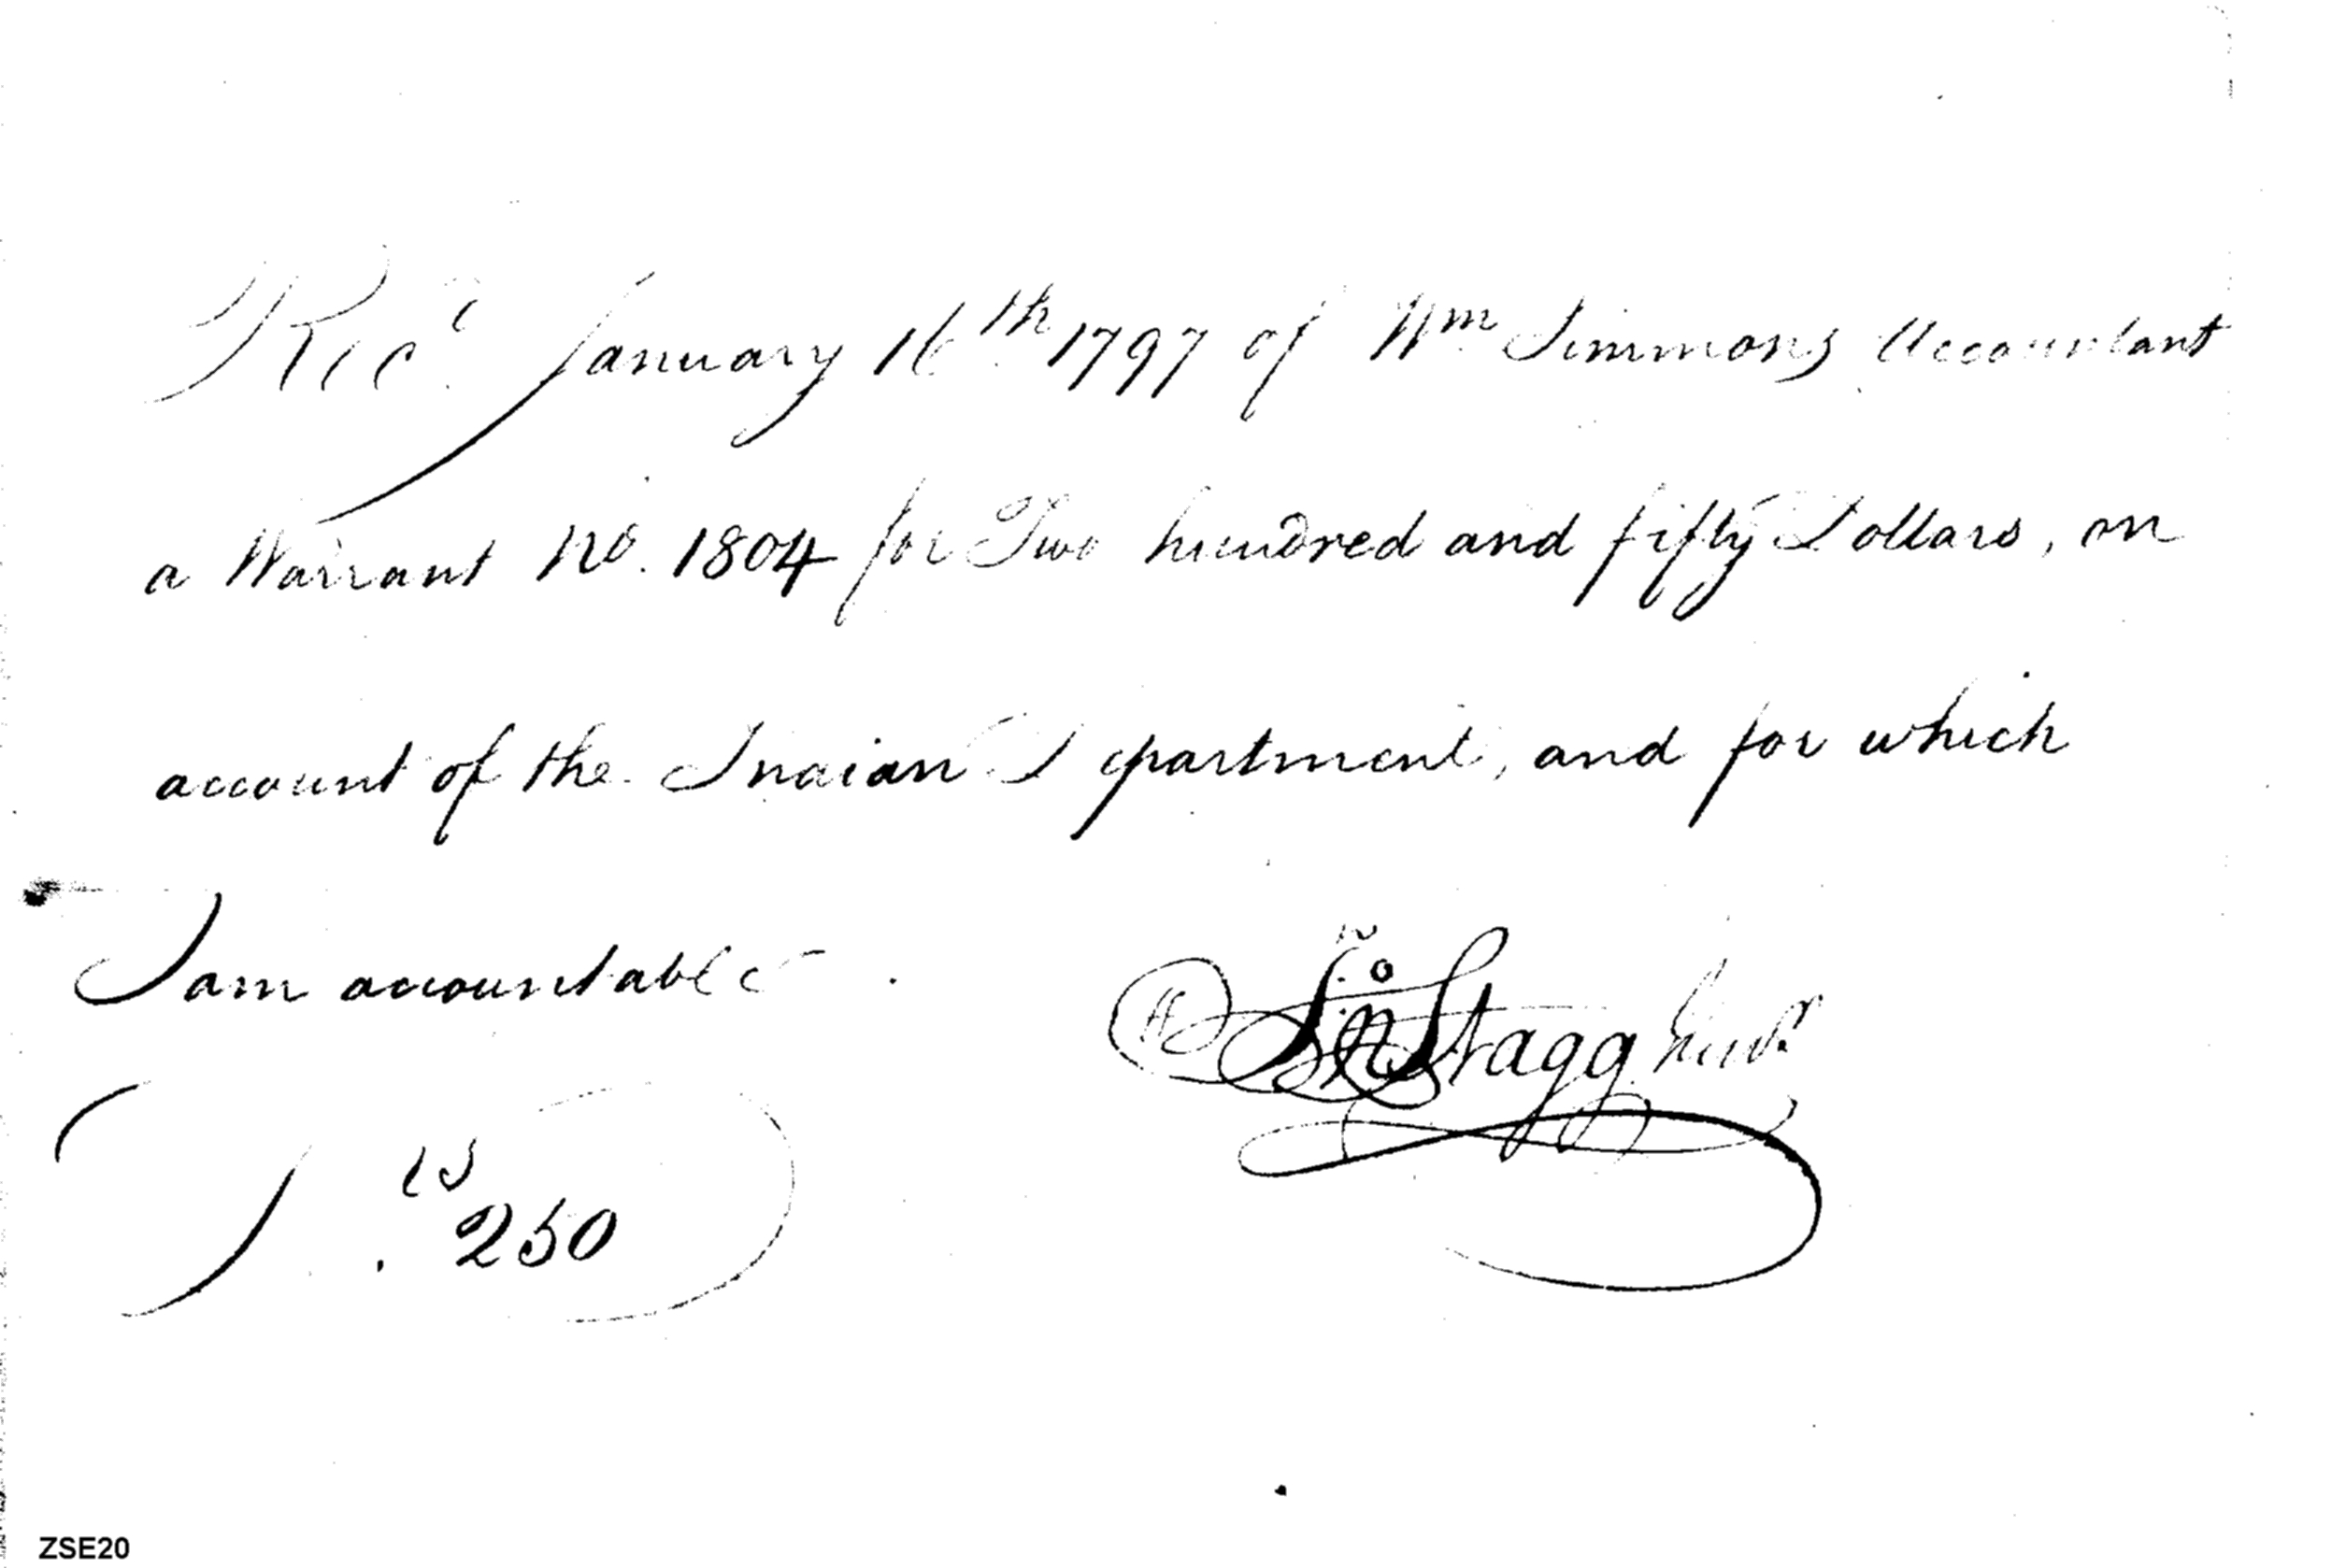 Recd January 16th 1797 of Wm Simmons Accountant
a Warrant No. 1804 for Two hundred and fifty Dollars, on
account of the Indian Department, and for which
I am accountable.
Jno Stagg Junr
Ds. 250
ZSE20